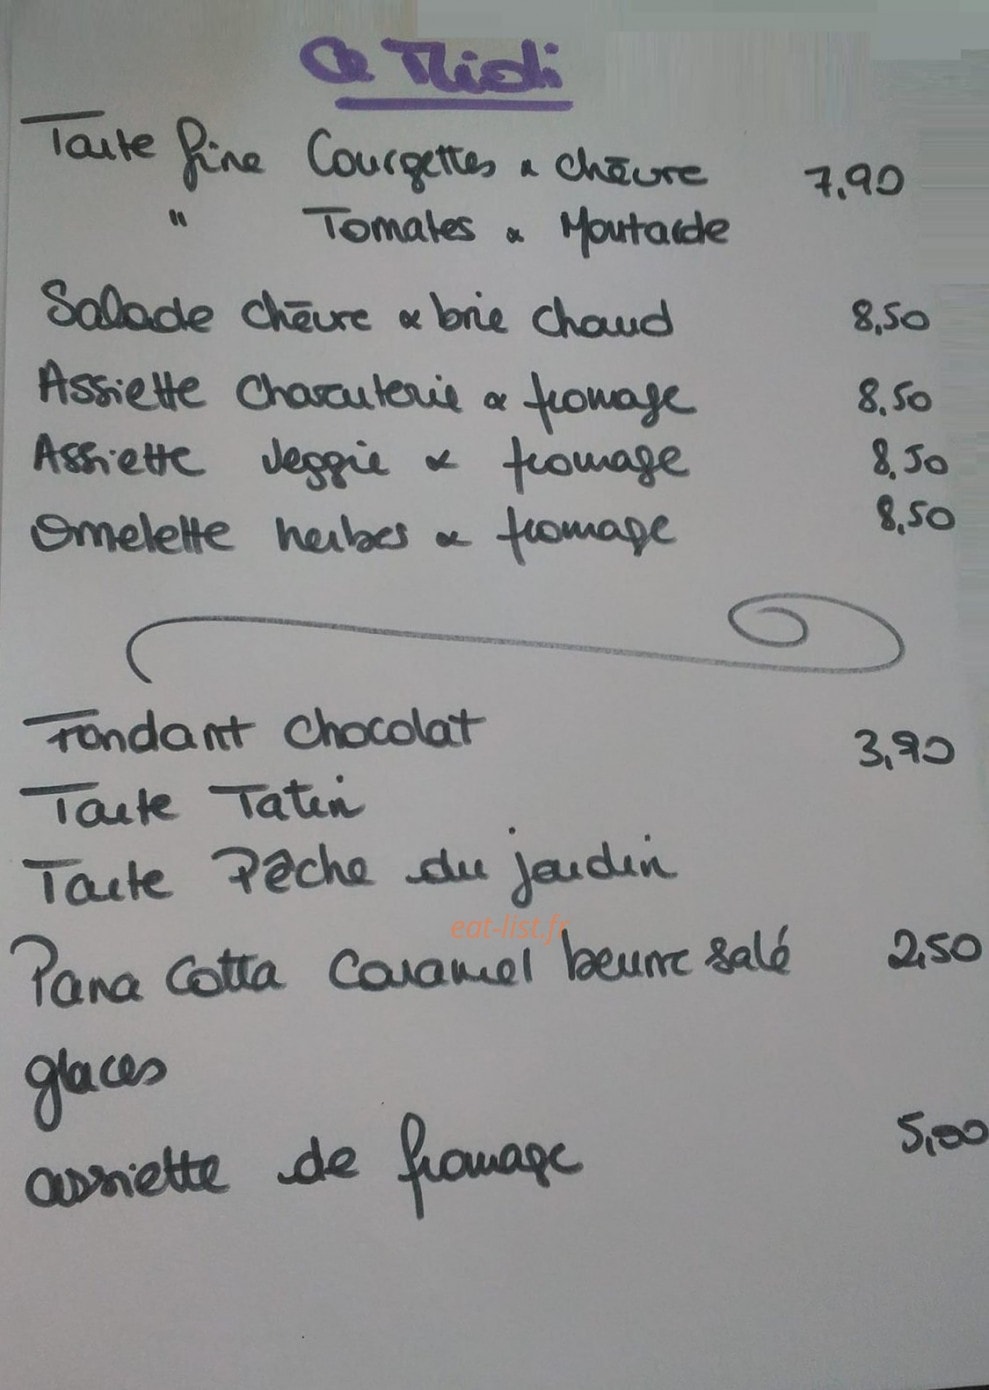 Ce Midi
Tarte fine Courgettes & chèvre 7,90
" Tomates & Moutarde
Salade chèvre & brie chaud 8,50
Assiette Charcuterie & fromage 8,50
Assiette veggie & fromage 8,50
Omelette herbes & fromage 8,50
Fondant chocolat 3,90
Tarte Tatin
Tarte Pêche du jardin
eat-list.fr
Pana Cotta Caramel beurre salé 2,50
glaces
assiette de fromage 5,00